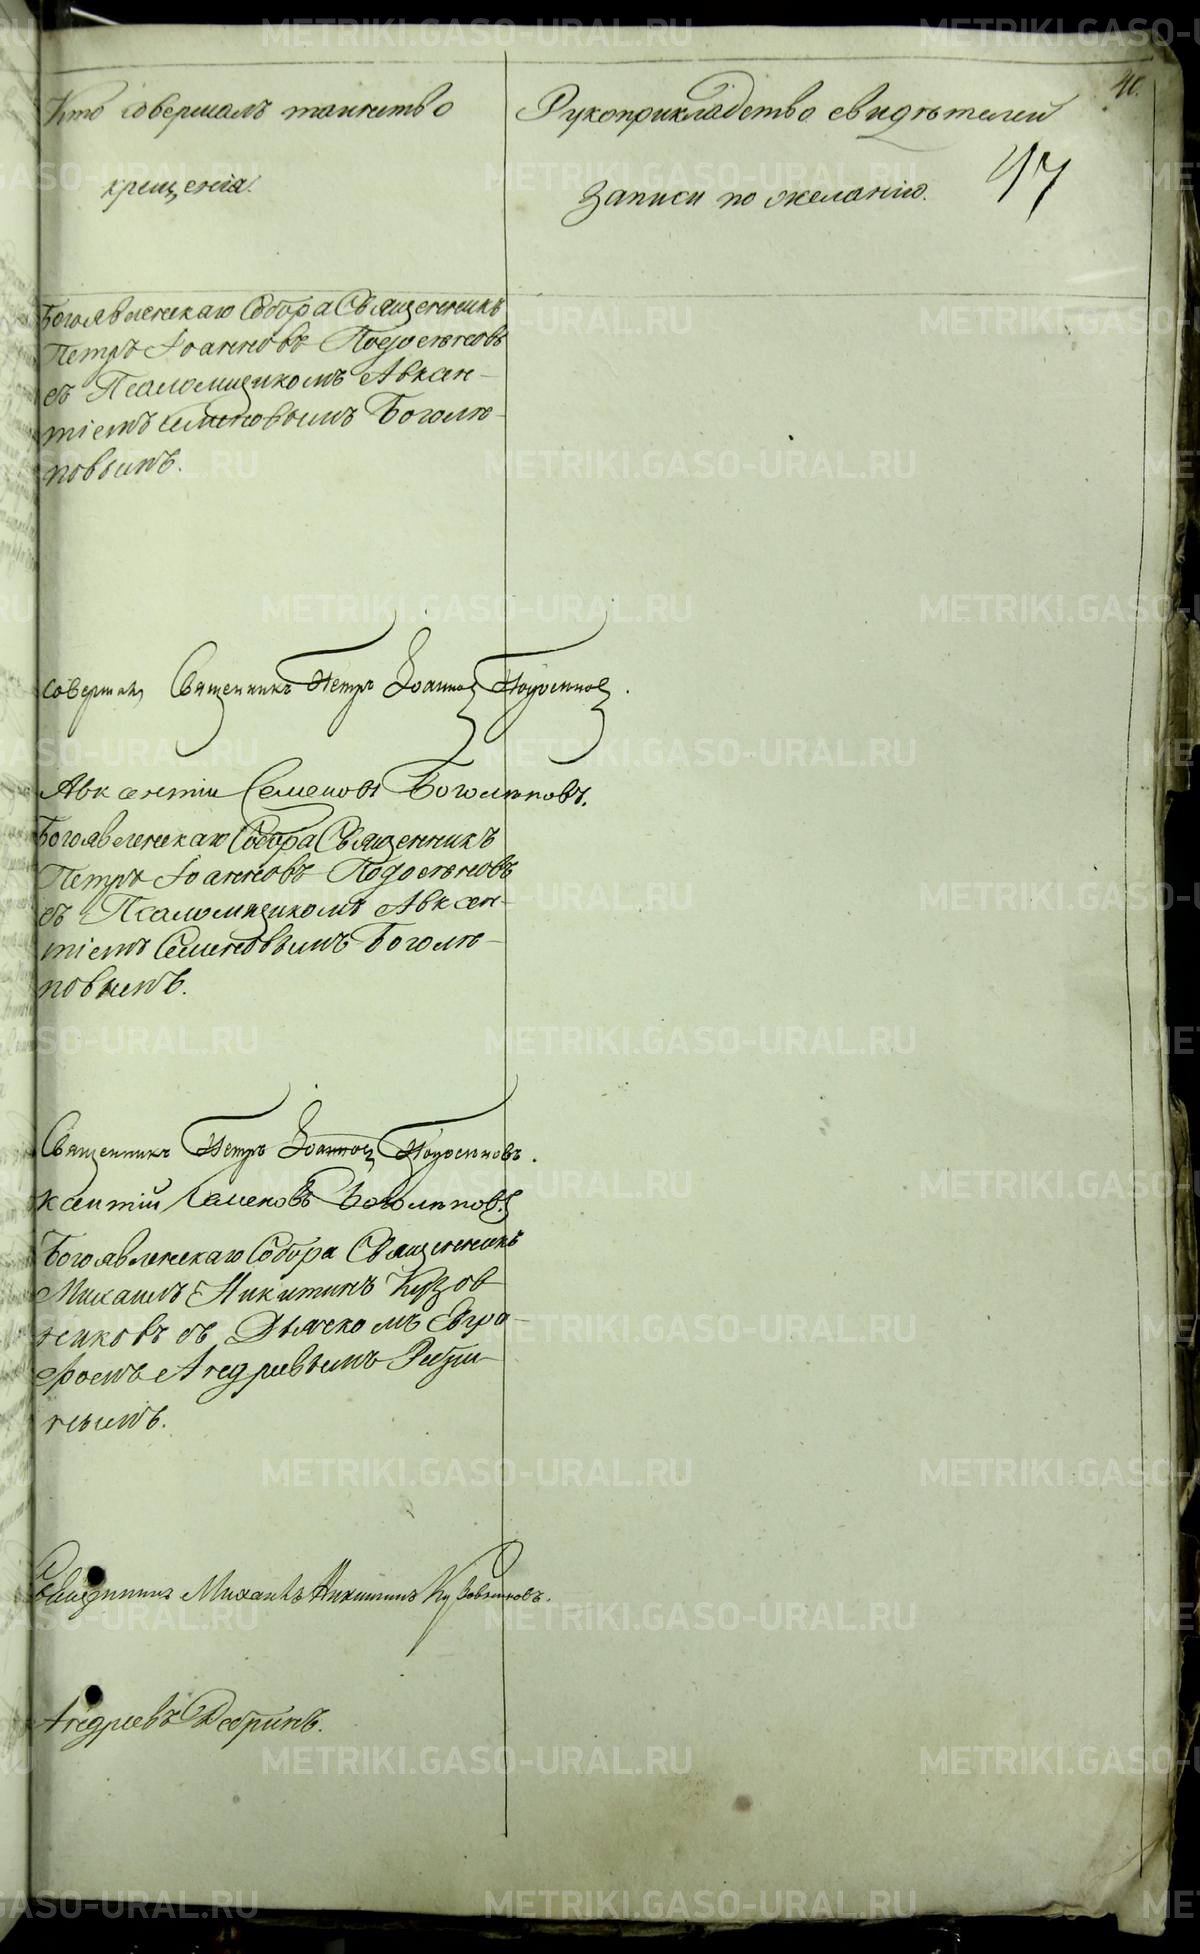 40.
Кто совершалъ таинство
крещенія.
Рукоприкладство свидѣтелей
записи по желанію.
47
Богоявленскаго Собора Священникъ
Петръ Іоанновъ Подосеновъ
съ Псаломщикомъ Авксен-
тіемъ Семеновымъ Боголѣ-
повымъ.
Священникъ Петръ Іоанновъ Подосеновъ.
Авксентій Семеновъ Боголѣповъ.
Богоявленскаго Собора Священникъ
Петръ Іоанновъ Подосеновъ
съ Псаломщикомъ Авксен-
тіемъ Семеновымъ Боголѣ-
повымъ.
Священникъ Петръ Іоанновъ Подосеновъ.
ксентій Семеновъ Боголѣповъ
Богоявленскаго Собора Священникъ
Михаилъ Никитинъ Кузов
никовъ съ Дьячкомъ Евгра-
фомъ Андреевымъ
Священникъ Михаилъ Никитинъ Кузовниковъ.
Андреевъ
METRIKI.GASO-URAL.RU